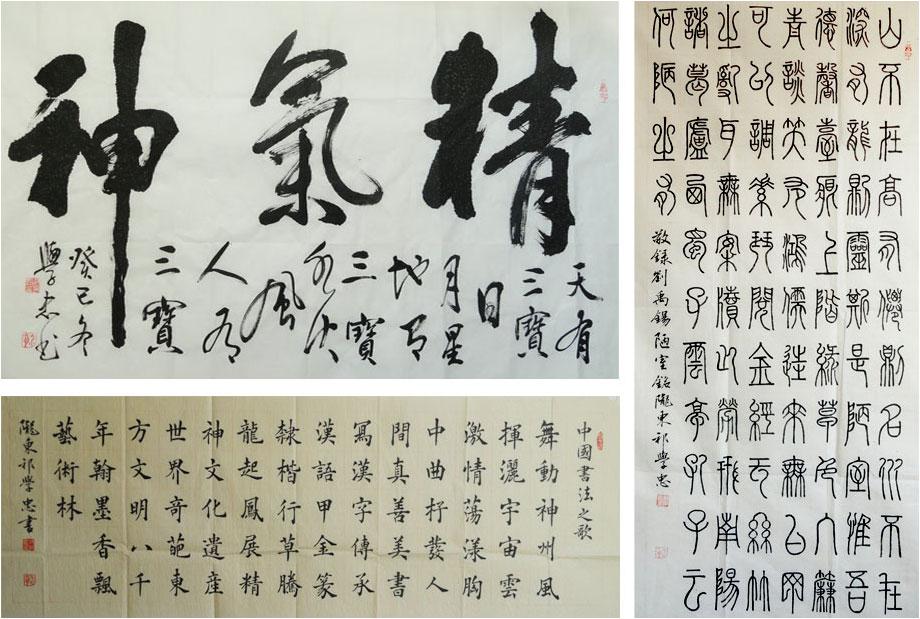 精氣神
天有
三寶
日
月星
地有
三寶
水火
風
人有
三寶
癸巳冬
學忠書
中國書法之歌
舞動神州風
揮灑宇宙雲
激情蕩漾胸
中曲抒發人
間真善美書
寫漢字傳承
漢語甲金篆
隸楷行草騰
龍起鳳展精
神文化遺産
世界奇葩東
方文明八千
年翰墨香飄
藝術林
隴東祁學忠書
山不在高有僊則名水不在
深有龍則靈斯是陋室惟吾
德馨苔痕上階綠草色入簾
青談笑有鴻儒往來無白丁
可以調素琴閱金經无絲竹
之亂耳無案牘之勞形南陽
諸葛廬西蜀子雲亭孔子云
何陋之有
敬錄劉禹錫陋室銘隴東祁學忠